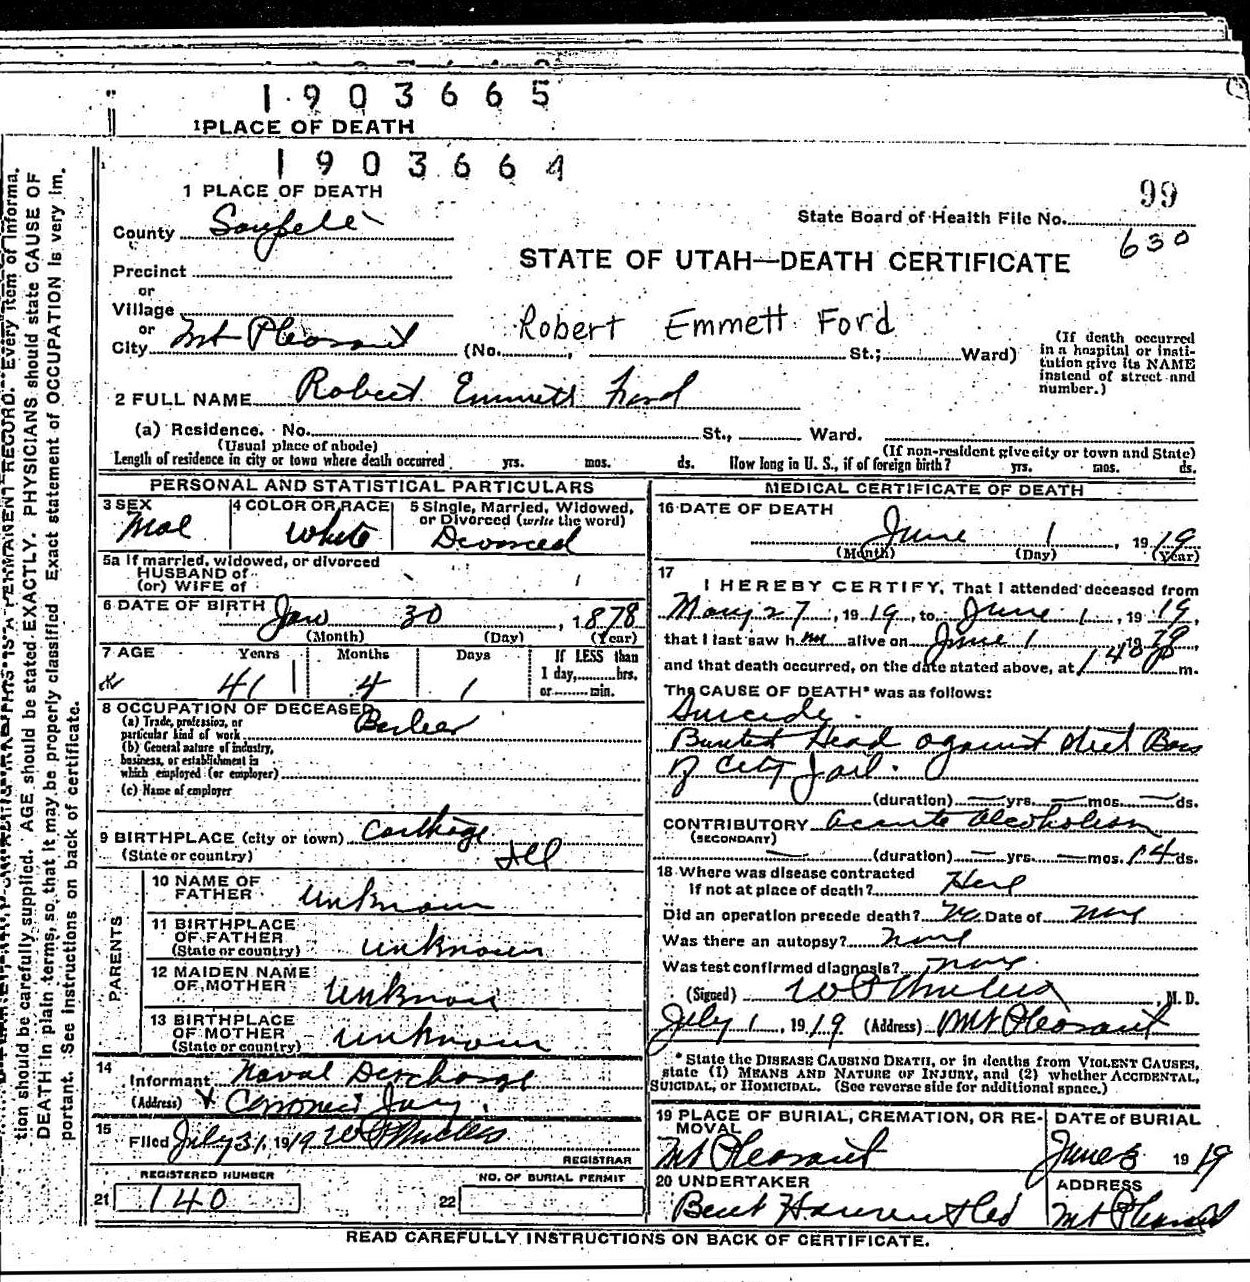 1903665
1 PLACE OF DEATH
1903664
1 PLACE OF DEATH
99
State Board of Health File No.
630
County Sanpete
STATE OF UTAH—DEATH CERTIFICATE
Precinct
or
Village
or
City Mt Pleasant (No. , St.; Ward)
Robert Emmett Ford
(If death occurred in a hospital or insti-
tution give its NAME
instead of street and
number.)
2 FULL NAME Robert Emmett Ford
(a) Residence. No. St., Ward.
(Usual place of abode) (If non-resident give city or town and State)
Length of residence in city or town where death occurred yrs. mos. ds. How long in U. S., if of foreign birth? yrs. mos. ds.
PERSONAL AND STATISTICAL PARTICULARS
3 SEX 4 COLOR OR RACE 5 Single, Married, Widowed,
or Divorced (write the word)
Mal White Divorced
5a If married, widowed, or divorced
HUSBAND of
(or) WIFE of
6 DATE OF BIRTH Jan 30, 1878
(Month) (Day) (Year)
7 AGE Years Months Days If LESS than
1 day, hrs.
or min.
41 4 1
8 OCCUPATION OF DECEASED
(a) Trade, profession, or
particular kind of work
(b) General nature of industry,
business, or establishment in
which employed (or employer)
(c) Name of employer
9 BIRTHPLACE (city or town) Carthage
(State or country) Ill
PARENTS
10 NAME OF
FATHER unknown
11 BIRTHPLACE
OF FATHER
(State or country) unknown
12 MAIDEN NAME
OF MOTHER unknown
13 BIRTHPLACE
OF MOTHER
(State or country) unknown
14
Informant Naval Discharge
(Address) & Coroner's Jury.
15
Filed July 31, 1919
REGISTRAR
REGISTERED NUMBER NO. OF BURIAL PERMIT
21 140 22
MEDICAL CERTIFICATE OF DEATH
16 DATE OF DEATH
June 1, 1919
(Month) (Day) (Year)
17
I HEREBY CERTIFY, That I attended deceased from
May 27, 1919, to June 1, 1919,
that I last saw him alive on June 1 19 19,
and that death occurred, on the date stated above, at 1 40 P m.
The CAUSE OF DEATH* was as follows:
Suicide.
Bunted Head against steel Bars
of City Jail.
(duration) yrs. mos. ds.
CONTRIBUTORY Acute Alcoholism
(SECONDARY)
(duration) yrs. mos. 14 ds.
18 Where was disease contracted
if not at place of death? Here
Did an operation precede death? No Date of none
Was there an autopsy? none
Was test confirmed diagnosis? none
(Signed) , M. D.
July 1, 1919 (Address) Mt Pleasant
*State the DISEASE CAUSING DEATH, or in deaths from VIOLENT CAUSES,
state (1) MEANS AND NATURE OF INJURY, and (2) whether ACCIDENTAL,
SUICIDAL, or HOMICIDAL. (See reverse side for additional space.)
19 PLACE OF BURIAL, CREMATION, OR RE-
MOVAL DATE OF BURIAL
Mt Pleasant June 3 1919
20 UNDERTAKER ADDRESS
Mt Pleasant
READ CAREFULLY INSTRUCTIONS ON BACK OF CERTIFICATE.
PERMANENT RECORD. Every item of informa-
tion should be carefully supplied. AGE should be stated EXACTLY. PHYSICIANS should state CAUSE OF
DEATH in plain terms, so that it may be properly classified. Exact statement of OCCUPATION is very im-
portant. See instructions on back of certificate.